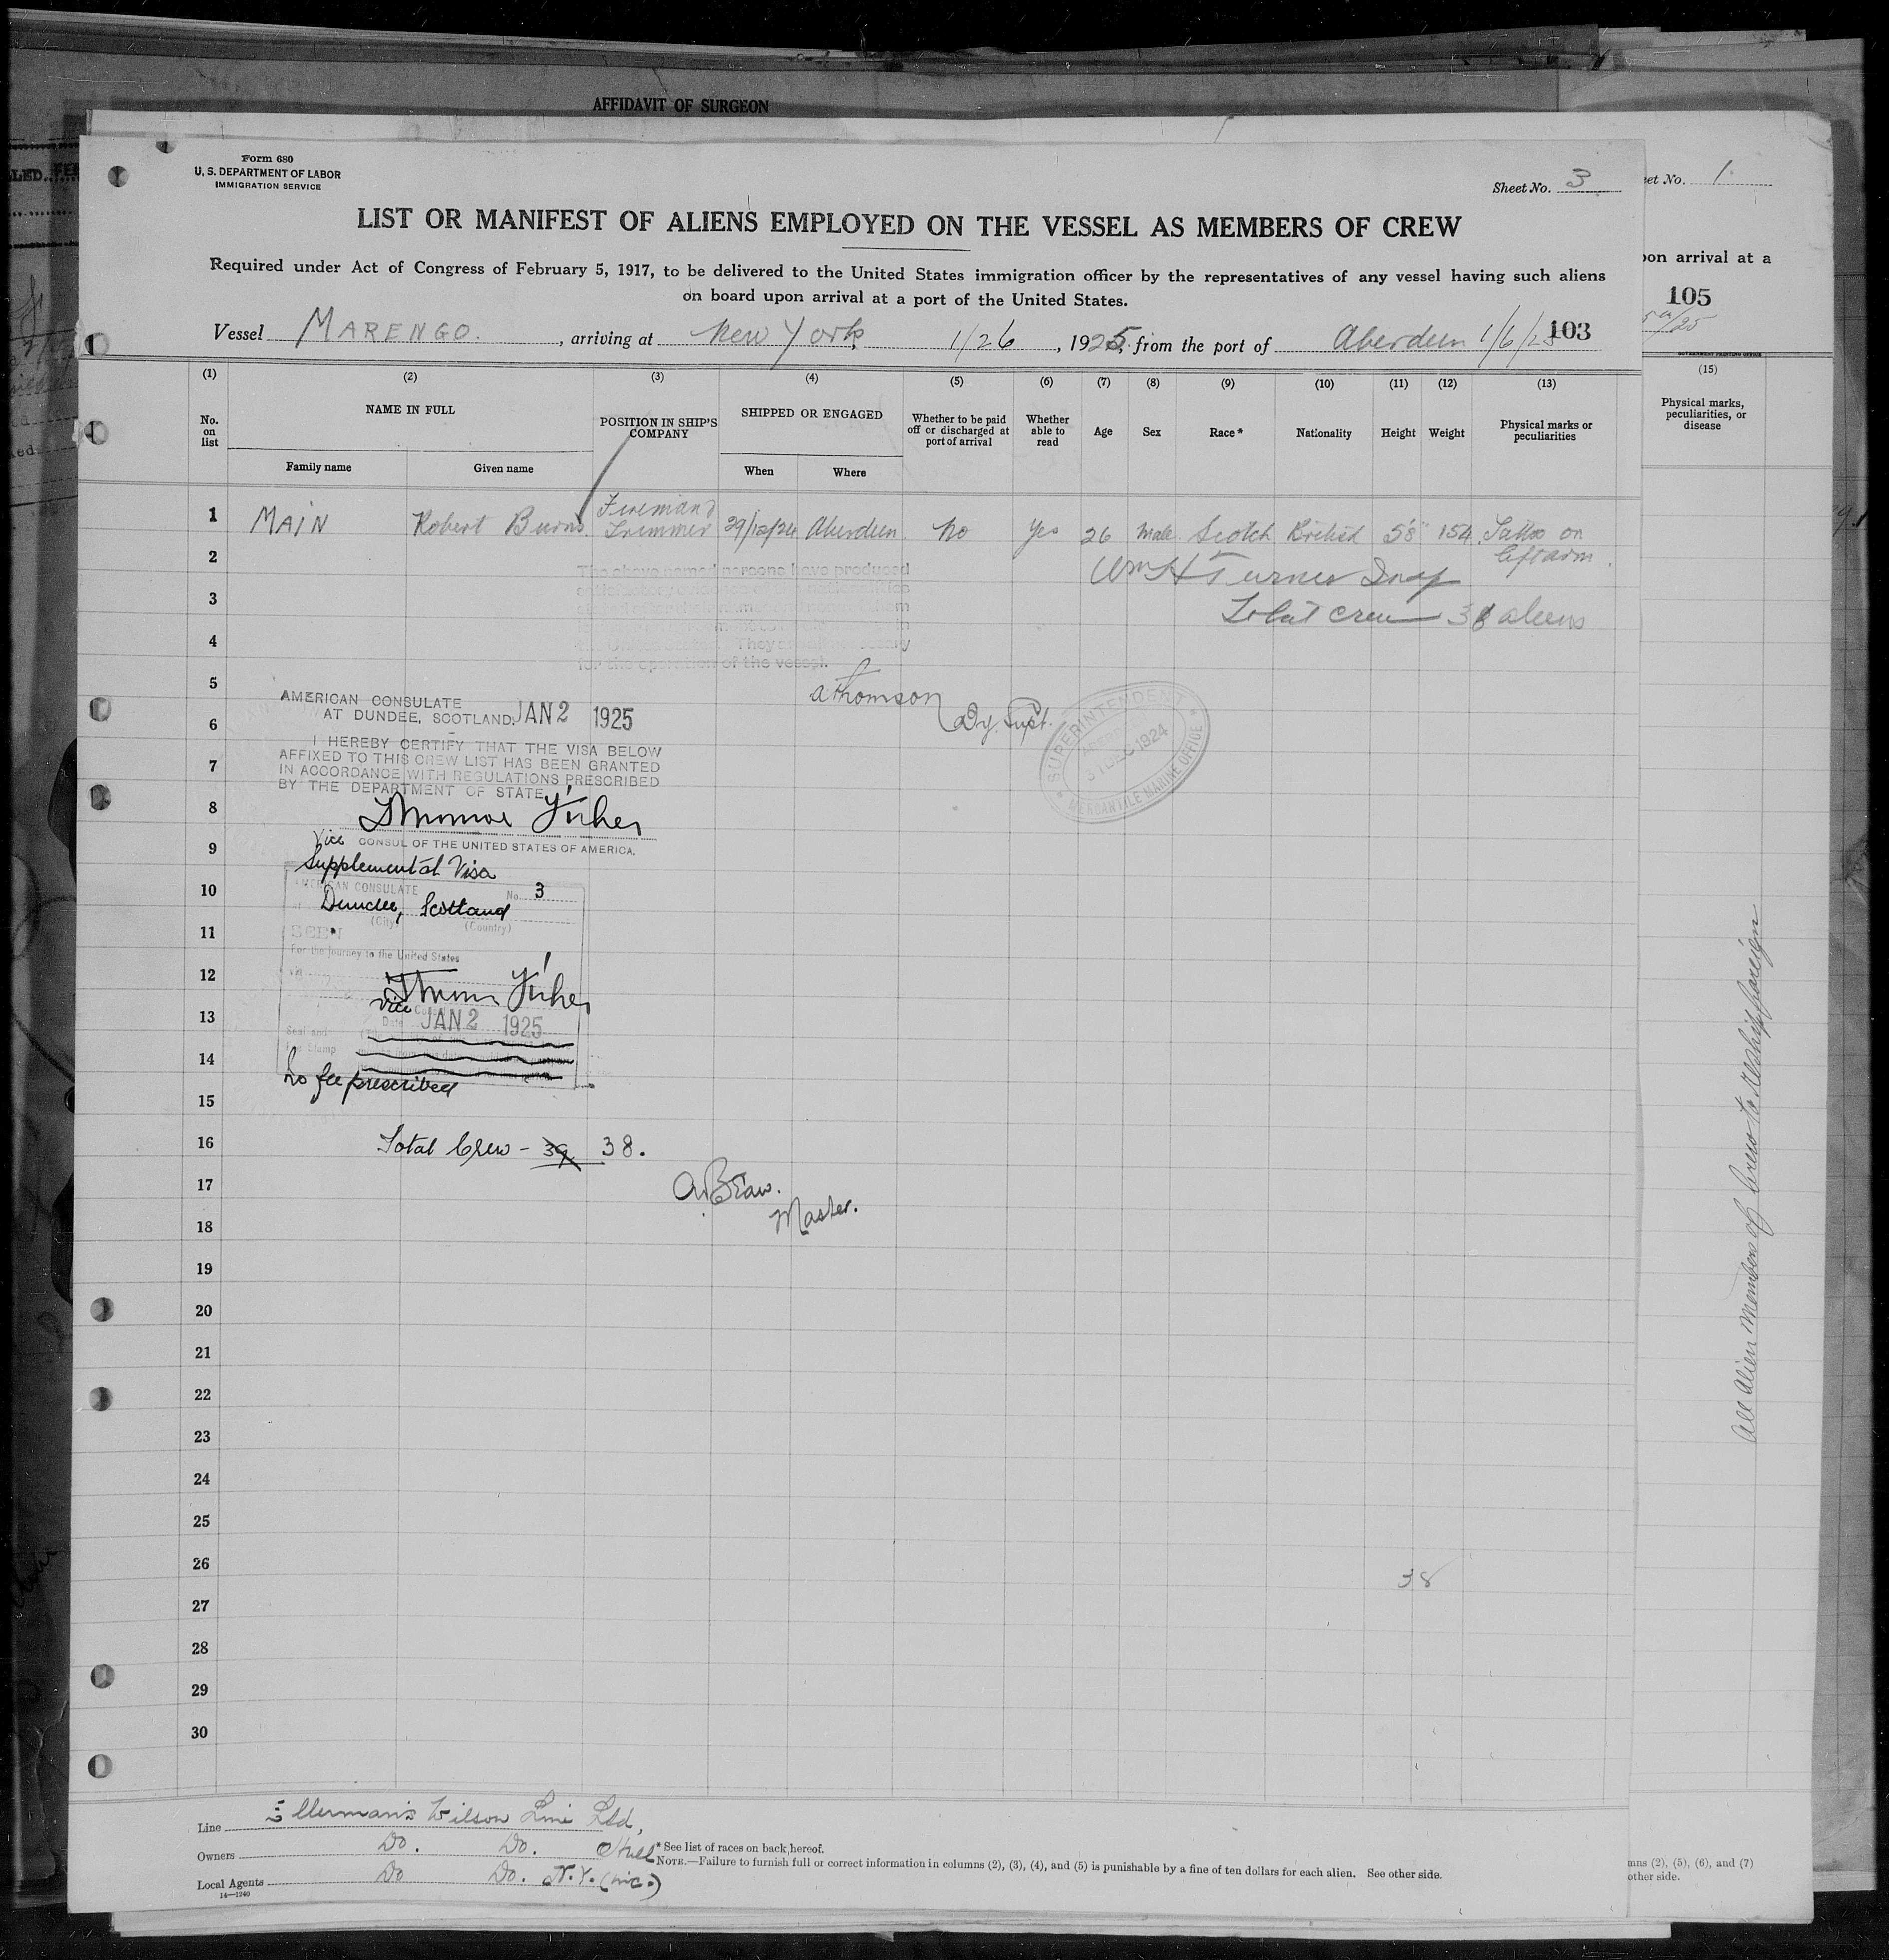 AFFIDAVIT OF SURGEON
Form 680
U. S. DEPARTMENT OF LABOR
IMMIGRATION SERVICE
Sheet No. 3
LIST OR MANIFEST OF ALIENS EMPLOYED ON THE VESSEL AS MEMBERS OF CREW
Required under Act of Congress of February 5, 1917, to be delivered to the United States immigration officer by the representatives of any vessel having such aliens
on board upon arrival at a port of the United States.
Vessel MARENGO. , arriving at New York, 1/26 , 1925, from the port of Aberdeen 1/6/25 103
(1) (2) (3) (4) (5) (6) (7) (8) (9) (10) (11) (12) (13)
No. on list
NAME IN FULL
Family name Given name
POSITION IN SHIP'S COMPANY
SHIPPED OR ENGAGED
When Where
Whether to be paid off or discharged at port of arrival
Whether able to read
Age
Sex
Race *
Nationality
Height
Weight
Physical marks or peculiarities
1 MAIN Robert Burns. Fireman & Trimmer 29/12/24 Aberdeen. No Yes 26 Male. Scotch British 5'8" 154 Tattoo on left arm.
2
Wm H Turner Insp
3
Total crew 38 aliens
The above named persons have produced
4
for the operation of the vessel.
5
A Thomson
Dy. Supt.
SUPERINTENDENT
31 DEC 1924
MERCANTILE MARINE OFFICE
AMERICAN CONSULATE
AT DUNDEE, SCOTLAND. JAN 2 1925
6
I HEREBY CERTIFY THAT THE VISA BELOW
AFFIXED TO THIS CREW LIST HAS BEEN GRANTED
7
IN ACCORDANCE WITH REGULATIONS PRESCRIBED
BY THE DEPARTMENT OF STATE.
8
Vice CONSUL OF THE UNITED STATES OF AMERICA.
9
Supplemental Visa
10
AMERICAN CONSULATE No. 3
Dundee, Scotland
(City) (Country)
11
SEEN
For the journey to the United States
12
Vice Consul
13
Date JAN 2 1925
Seal and
Fee Stamp
14
No fee prescribed
15
16
Total Crew - 39 38.
17
Master.
18
19
20
21
22
23
24
25
26
38
27
28
29
30
Line Ellerman's Wilson Line Ltd,
Owners Do. Do. Hull
Local Agents Do Do. N.Y. (Inc.)
14—1240
* See list of races on back hereof.
NOTE.—Failure to furnish full or correct information in columns (2), (3), (4), and (5) is punishable by a fine of ten dollars for each alien. See other side.
et No. 1.
pon arrival at a
105
(15)
Physical marks,
peculiarities, or
disease
All Alien Members of Crew to Reship foreign
mns (2), (5), (6), and (7)
other side.